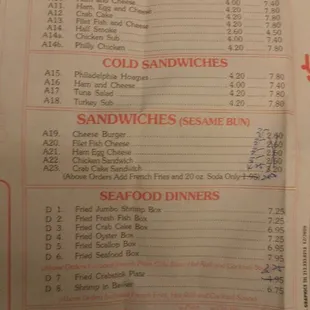 A11. Ham and Cheese 4.00 7.40
A12. Ham, Egg and Cheese 4.20 7.80
A13. Crab Cake
A14. Filet Fish and Cheese 4.20 7.80
A14. Half Smoke 2.60 4.50
A14a. Chicken Sub 4.00 7.40
A14b. Philly Chicken 4.20 7.80
COLD SANDWICHES
A15. Philadelphia Hoagies 4.20 7.80
A16. Ham and Cheese 4.00 7.40
A17. Tuna Salad 4.20 7.80
A18. Turkey Sub 4.20 7.80
SANDWICHES (SESAME BUN)
A19. Cheese Burger 2.60
A20. Filet Fish Cheese
A21. Ham Egg Cheese
A22. Chicken Sandwich
A23. Crab Cake Sandwich
(Above Orders Add French Fries and 20 oz. Soda Only
SEAFOOD DINNERS
D 1. Fried Jumbo Shrimp Box 7.25
D 2. Fried Fresh Fish Box 7.25
D 3. Fried Crab Cake Box 6.95
D 4. Fried Oyster Box 7.25
D 5. Fried Scallop Box 6.95
D 6. Fried Seafood Box 7.25
D 7. Fried Crabstick Plate
D 8. Shrimp in Basket 5.75